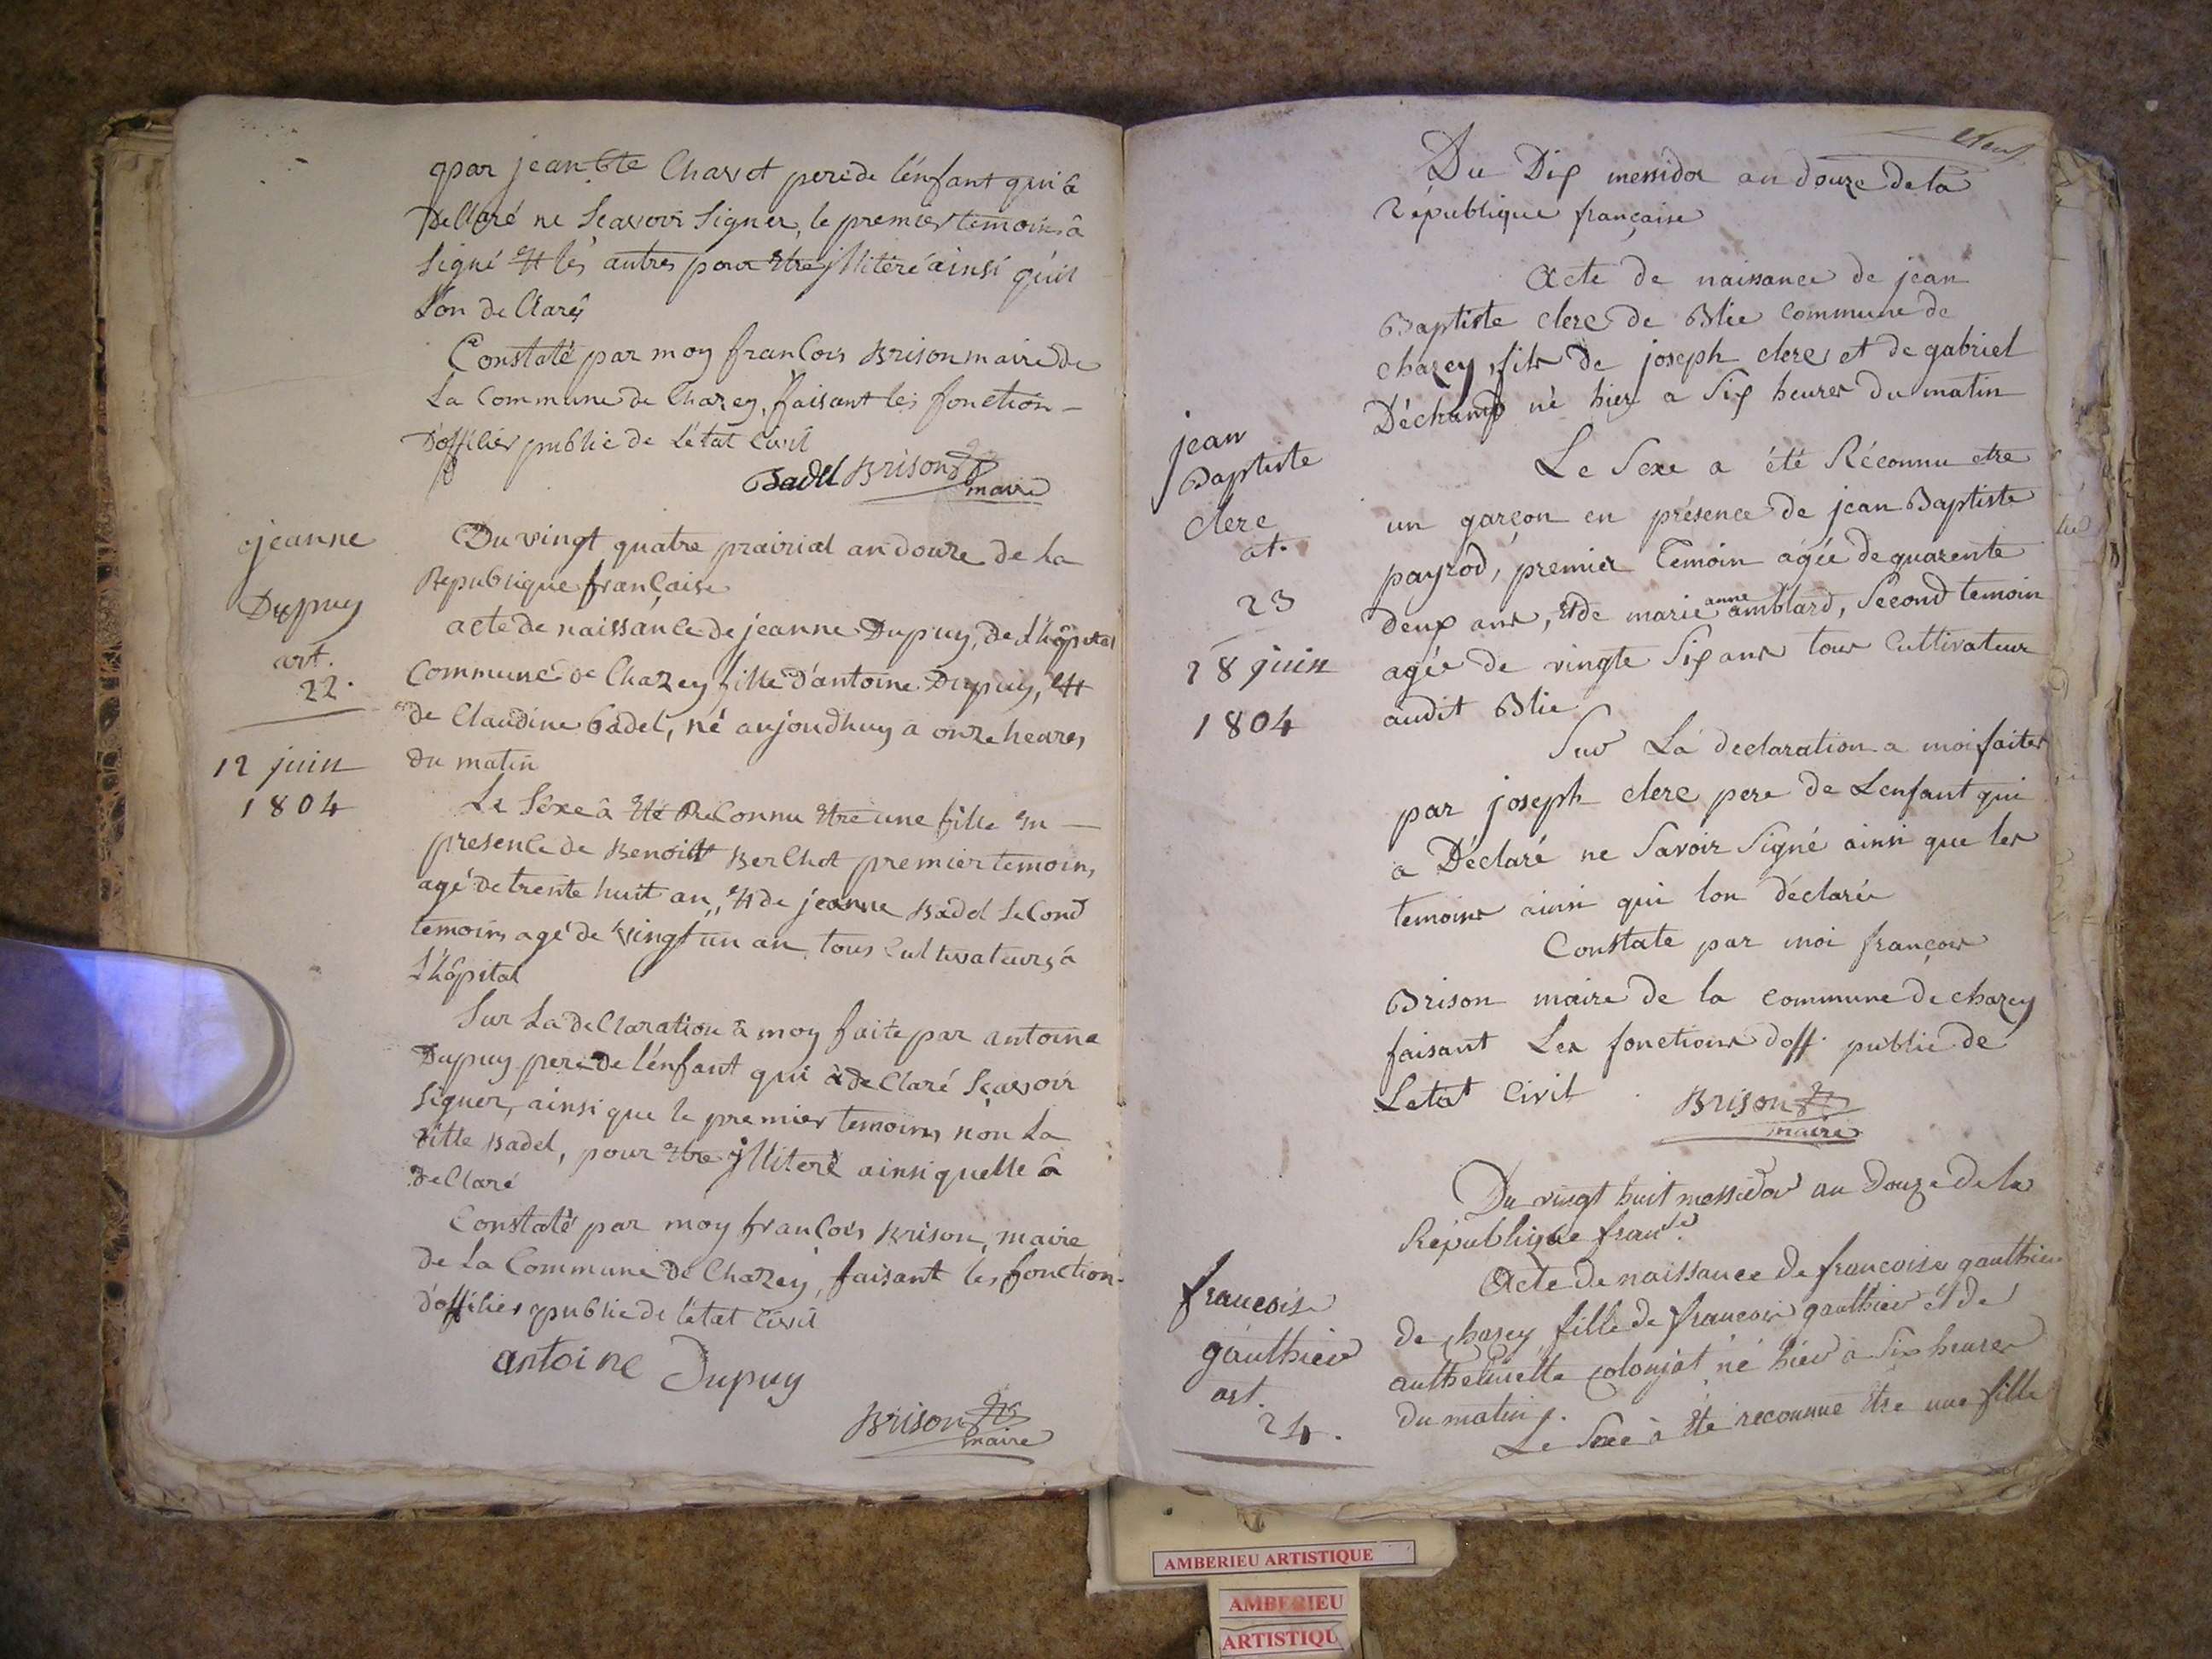 par jean bte Charvet pere de l'enfant qui à
Declaré ne Scavoir Signer, le premier temoins à
Signé Et les autres pour Etre jlliteré ainsi quil
L'on declaré
Constaté par moy francois Brison maire de
La Commune de Chazey, faisant les fonction
D'officier public de L'état Civil
Badel Brison
maire
jeanne
Dupuy
art.
22.
12 juin
1804
Du vingt quatre prairial an douze de La
Republique française
acte de naissance de jeanne Dupuy, de L'hôpital
Commune de Chazey fille d'antoine Dupuy, Et
de Claudine badel, né aujoudhuy a onze heures
du matin
Le Séxe à Eté ReConnu Etre une fille En
presence de Benoitt Berlhot premier temoins
agé de trente huit an, Et de jeanne Badel Second
temoins agé de vingt un an tous Cultivateurs à
L'hôpital
Sur La declaration à moy faite par antoine
Dupuy pere de l'enfant qui à declaré Sçavoir
Signer, ainsi que le premier temoins non La
ditte Badel, pour Etre jlliteré ainsi quelle à
declaré
Constaté par moy francois Brison, maire
de La Commune de Chazey, faisant les fonction
d'officier public de l'état Civil
antoine Dupuy
Brison
maire
Du Dix messidor an douze de la
république française
jean
Baptiste
clerc
at.
23
28 juin
1804
Acte de naissance de jean
Baptiste clerc de Blie commune de
chazey, fils de joseph clerc et de gabriel
Déchamp né hier a Six heures du matin
Le Sexe a été Réconnu etre
un garçon en présence de jean Baptiste
payrod, premier Temoin agée de quarente
deux ans, Et de marie anne amblard, Second temoin
agée de vingte Six ans tous Cultivateur
audit Blie
Sur La declaration a moi faites
par joseph clerc pere de Lenfant qui
a Déclaré ne Savoir Signé ainsi que les
temoins ainsi qui lon déclarée
Constate par moi françois
Brison maire de la commune de chazey
faisant Les fonctions d'off. public de
Letat Civil
Brison
maire
francoise
gauthier
art.
24.
Du vingt huit messidor an Douze de la
République franse.
Acte de naissance de francoise gauthier
de chazey fille de francois gauthier et de
anthelmette colonjat né hier à Six heures
du matin.
Le Sexe à Eté reconnue Etre une fille
AMBERIEU ARTISTIQUE
AMBERIEU
ARTISTIQU